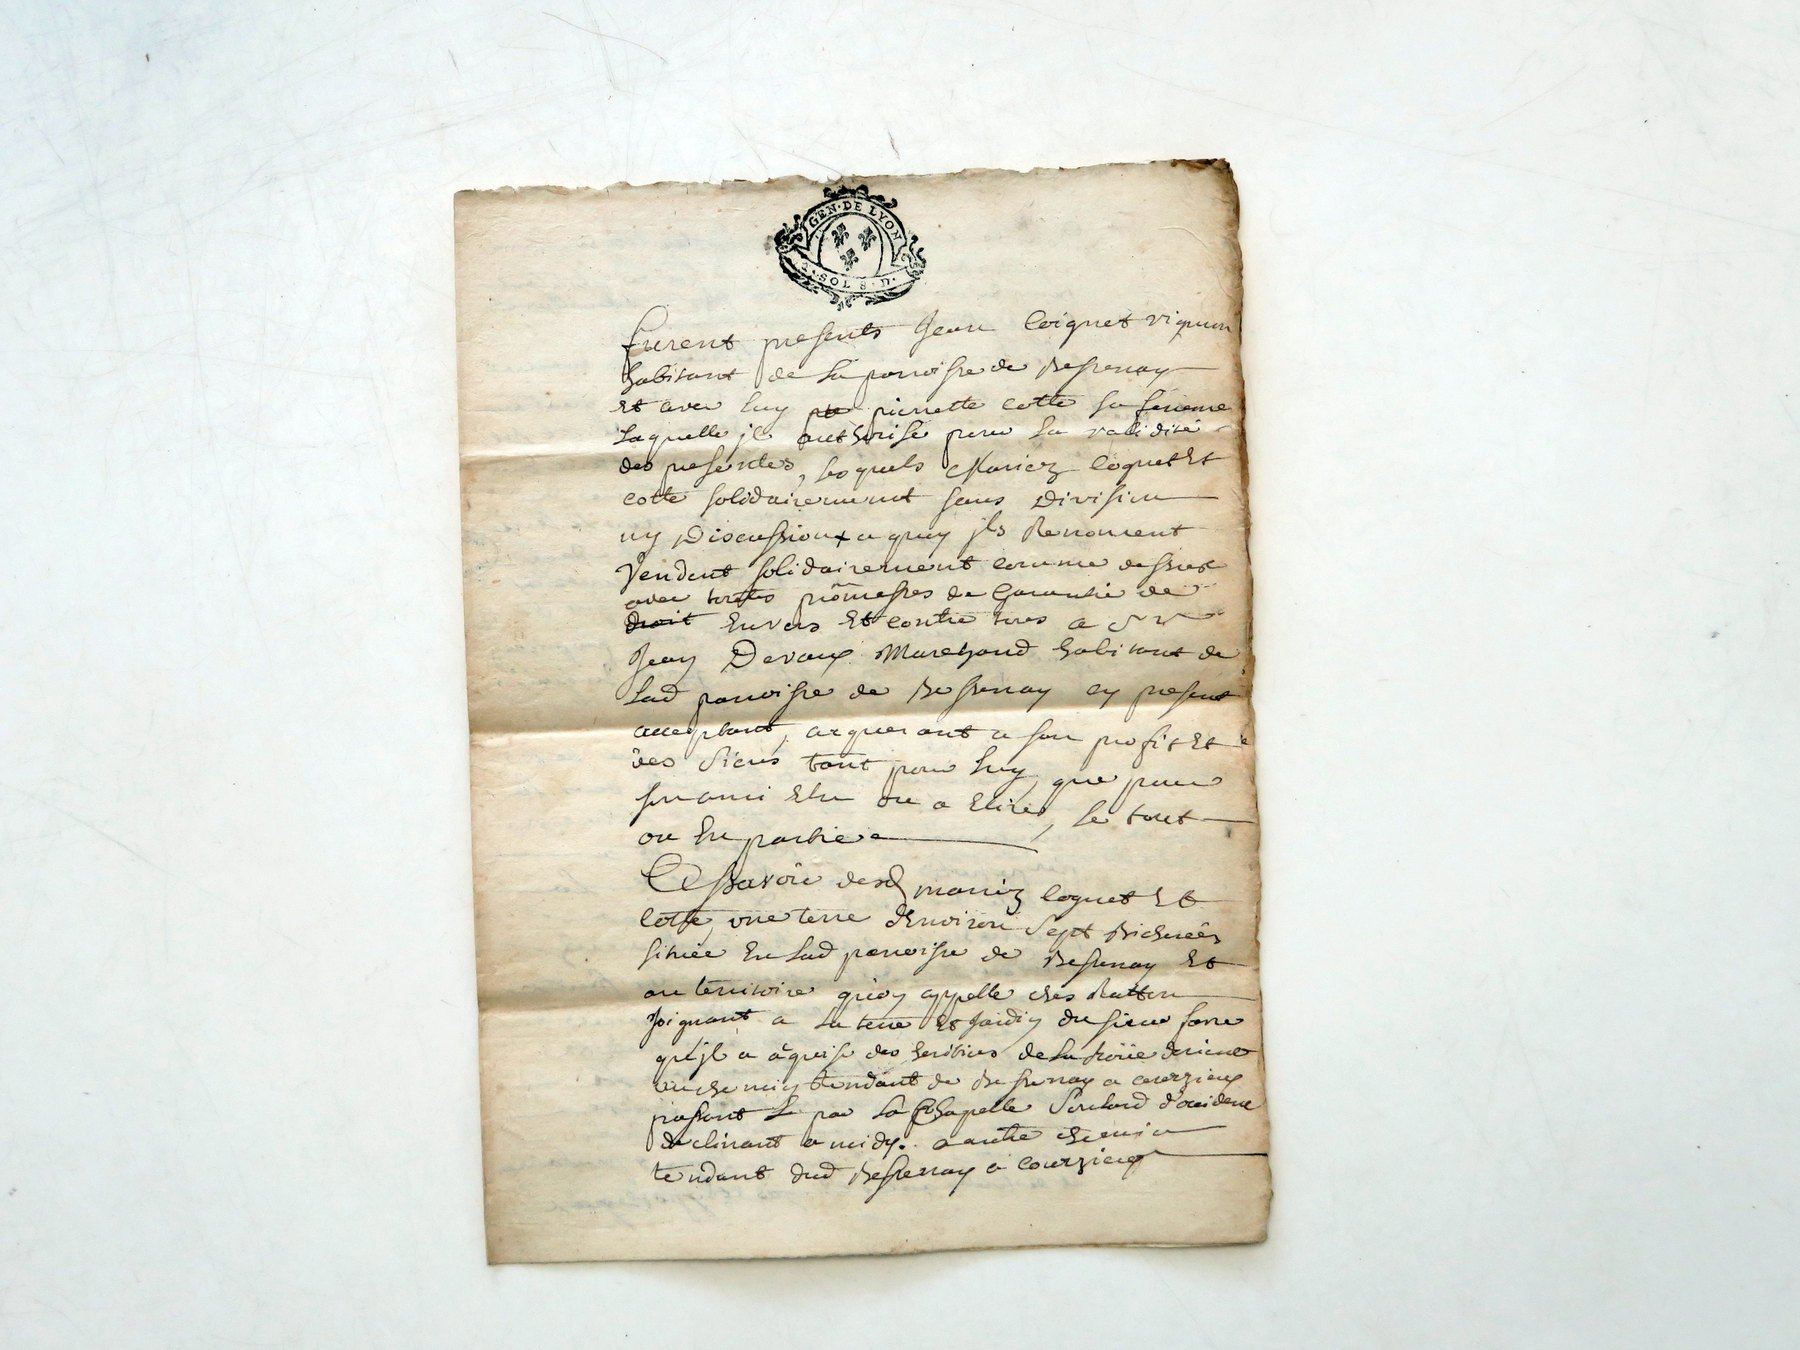 GEN · DE LYON
SOL 8 · D ·
furent presents Jean Coignet vigneron
habitant de la parroisse de Bessenay
et avec luy pierrette cotte sa femme
laquelle jl authorise pour la validité
des presentes, lesquels Mariez Cognet Et
cotte solidairement sans Division
ny Discussion a quoy jls Renoncent
Vendent solidairement comme dessus
avec toutes promesses de Garantie de
droit Envers Et contre tous a Sr
Jean Devaux Marchand habitant de
lad parroisse de Bessenay cy present
acceptant, acquerant a son profit Et
des siens tant pour luy, que pour
son ami Elu ou a Elire, le tout
ou En partie
A Scavoir desd mariez Cognet Et
Cotte, une terre d'Environ Sept Bicherées
située En lad parroisse de Bessenay Et
au territoire qu'on appelle ches Ratton
Joignant a la terre Et Jardin du sieur
qu'jl a aquise des heritiers de la
un chemin tendant de Bessenay a courzieux
passant par la Chapelle d'occident
declinant a midy. a autre chemin
tendant dud Bessenay a Courzieux